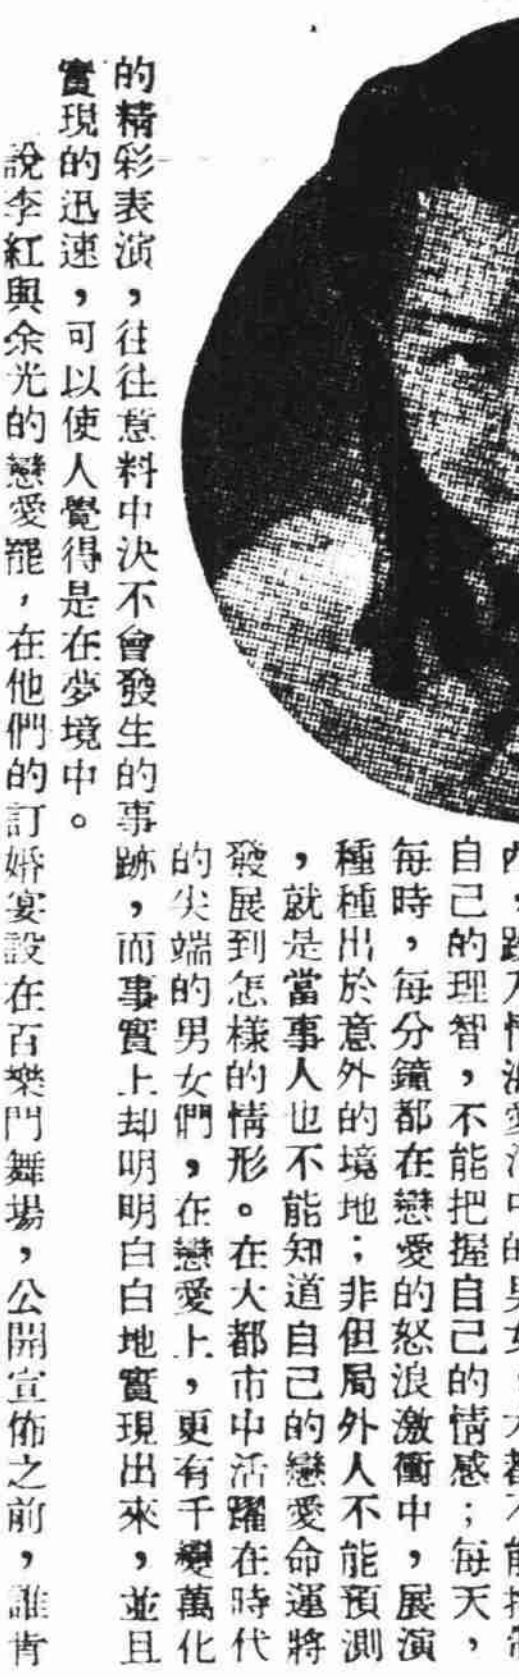 自己的理智，不能把握自己的情感；每天，
每時，每分鐘都在戀愛的怒浪激衝中，展演
種種出於意外的境地；非但局外人不能預測
，就是當事人也不能知道自己的戀愛命運將
發展到怎樣的情形。在大都市中活躍在時代
的尖端的男女們，在戀愛上，更有千變萬化
的精彩表演，往往意料中決不會發生的事跡，而事實上却明明白白地實現出來，並且
實現的迅速，可以使人覺得是在夢境中。
說李紅與余光的戀愛罷，在他們的訂婚宴設在百樂門舞場，公開宣佈之前，誰肯